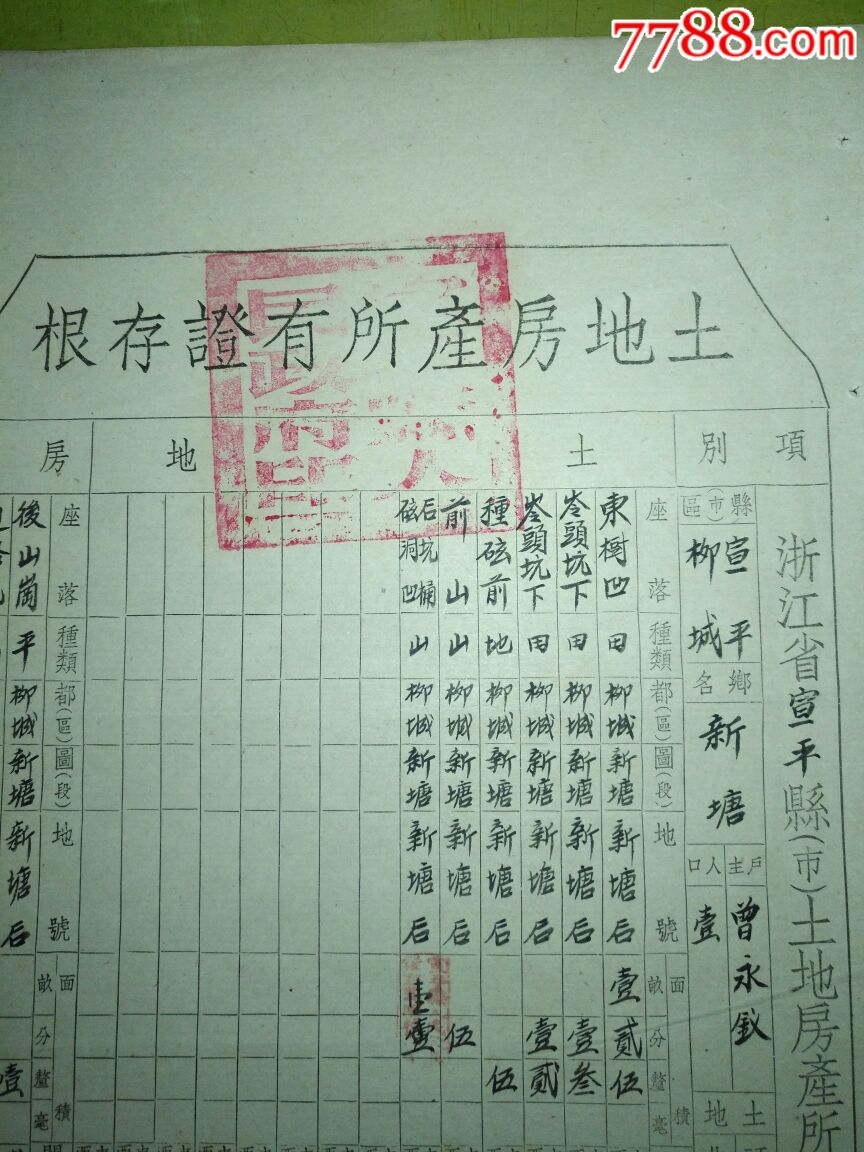 7788.com
土地房產所有證存根
浙江省宣平縣(市)土地房產所
項別
土地
房
縣(市)區
宣平
柳城
鄉名
新塘
戶主
曾永
人口
壹
土地
座落
種類
都(區)
圖(段)
地號
面積
畝分釐毫
東樹凹 田 柳城 新塘 新塘后 壹貳伍
岺頭坑下 田 柳城 新塘 新塘后 壹叁
岺頭坑下 田 柳城 新塘 新塘后 壹貳
種磁前 地 柳城 新塘 新塘后 伍
前山 山 柳城 新塘 新塘后 伍
后坑桶
磁洞凹 山 柳城 新塘 新塘后 壹
座落
種類
都(區)
圖(段)
地號
面積
畝分釐毫
後山崗 平 柳城 新塘 新塘后 壹